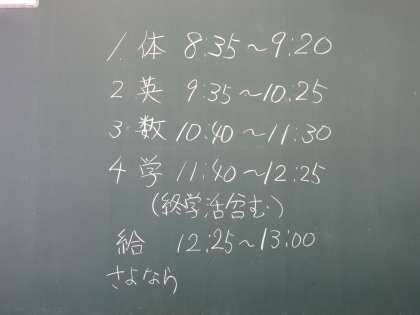 1. 体 8:35～9:20
2 英 9:35～10:25
3. 数 10:40～11:30
4 学 11:40～12:25
(終学活含む)
給 12:25～13:00
さよなら